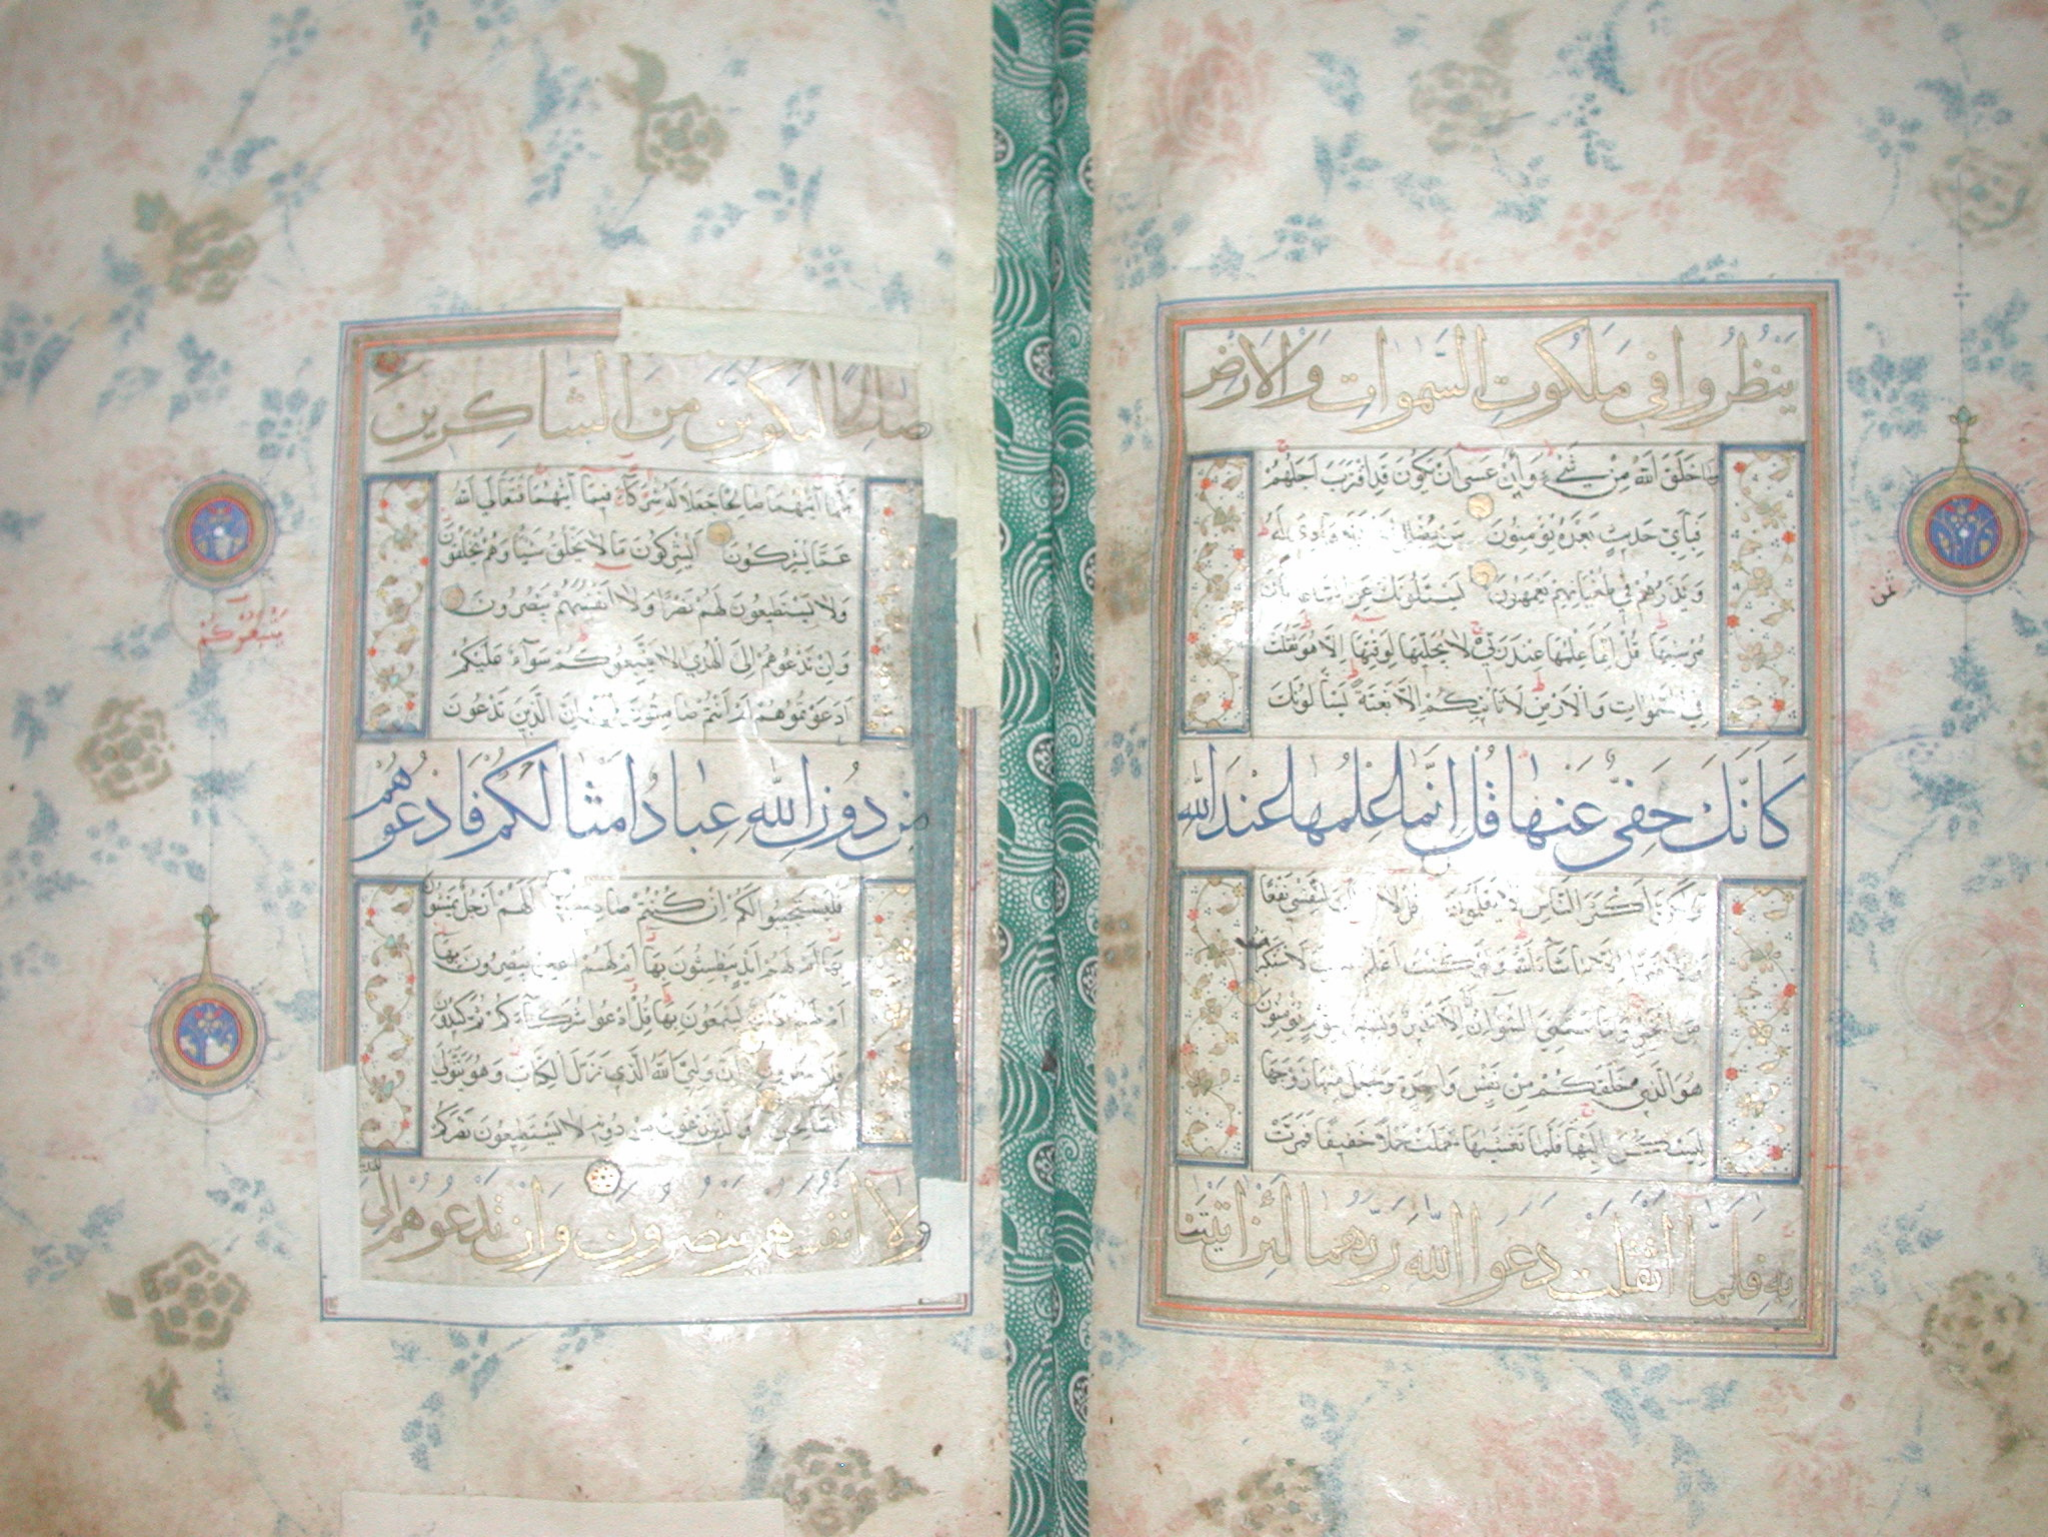 ينظروا في ملكوت السموات والارض
وما خلق الله من شيء وأن عسى أن يكون قد اقترب أجلهم
فبأي حديث بعده يؤمنون من يضلل الله فلا هادي له
ويذرهم في طغيانهم يعمهون يسئلونك عن الساعة أيان
مرسيها قل إنما علمها عند ربي لا يجليها لوقتها إلا هو ثقلت
في السموات والأرض لا تأتيكم إلا بغتة يسألونك
كَأَنَّكَ حَفِيٌّ عَنْهَا قُلْ إِنَّمَا عِلْمُهَا عِنْدَ اللهِ
أكثر الناس لا يعلمون قل لا لنفسي نفعا
إلا ما شاء الله ولو كنت أعلم الغيب لاستكثرت
من الخير وما مسني السوء إن أنا إلا نذير وبشير لقوم يؤمنون
هو الذي خلقكم من نفس واحدة وجعل منها زوجها
ليسكن إليها فلما تغشيها حملت حملا خفيفا فمرت
به فلما اثقلت دعوا الله ربهما لئن اتيتنا
ثمن
صالحا لنكونن من الشاكرين
فلما آتيهما صالحا جعلا له شركاء فيما آتيهما فتعالى الله
عما يشركون أيشركون ما لا يخلق شيئا وهم يخلقون
ولا يستطيعون لهم نصرا ولا أنفسهم ينصرون
وإن تدعوهم إلى الهدى لا يتبعوكم سواء عليكم
أدعوتموهم أم أنتم صامتون إن الذين تدعون
من دون الله عباد امثالكم فادعوهم
فليستجيبوا لكم إن كنتم صادقين ألهم أرجل يمشون
بها أم لهم أيد يبطشون بها أم لهم أعين يبصرون بها
أم لهم آذان يسمعون بها قل ادعوا شركاءكم ثم كيدون
فلا تنظرون إن وليي الله الذي نزل الكتاب وهو يتولى
الصالحين والذين تدعون من دونه لا يستطيعون نصركم
ولا انفسهم ينصرون وان تدعوهم الى
يتبعوكم